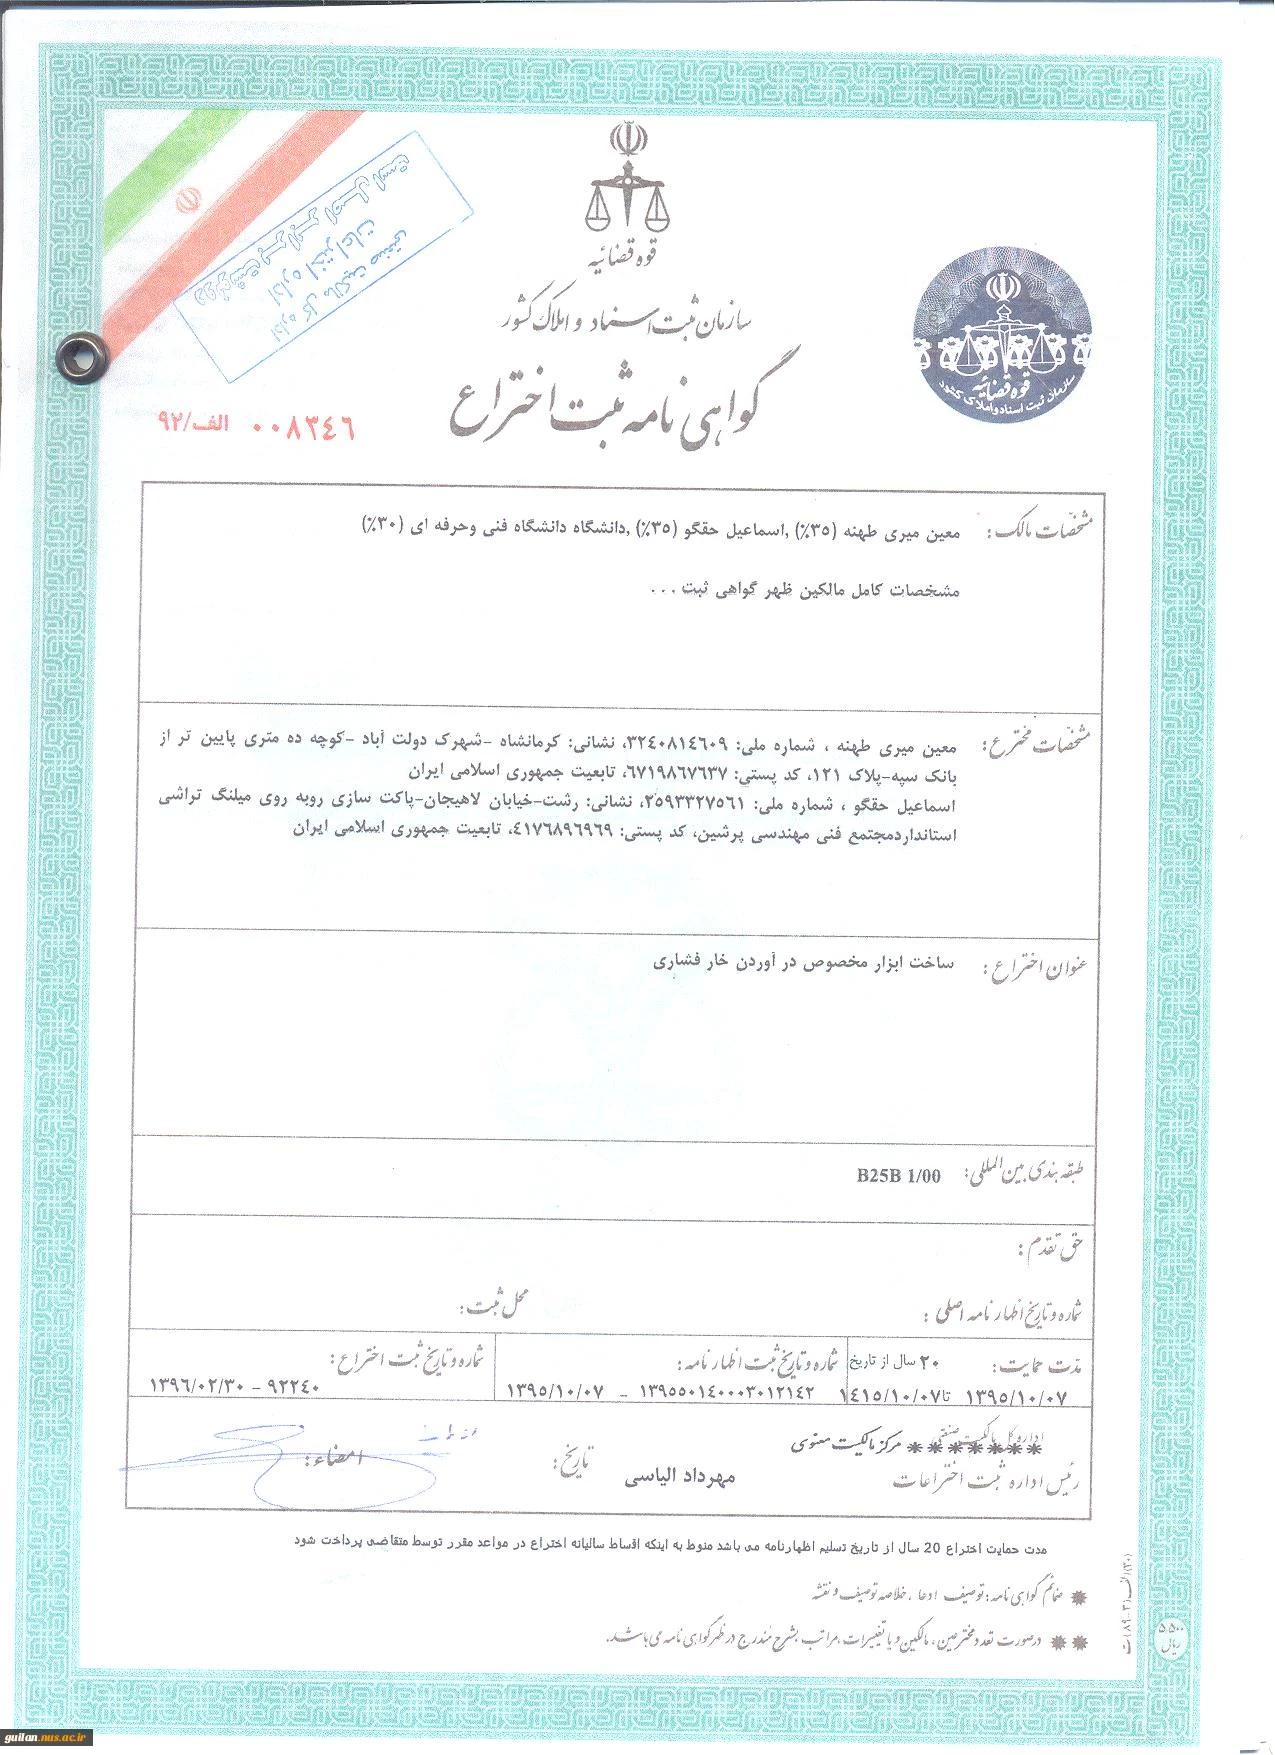 قوه قضائیه
سازمان ثبت اسناد و املاک کشور
گواهی نامه ثبت اختراع
قوه قضائیه
سازمان ثبت اسناد و املاک کشور
اداره اختراعات
اداره کل مالکیت صنعتی
الف/۹۲ ۰۰۸۳۴۶
مشخصات مالک: معین میری طهنه (۳۵٪) ,اسماعیل حقگو (۳۵٪) ,دانشگاه دانشگاه فنی وحرفه ای (۳۰٪)
مشخصات کامل مالکین ظهر گواهی ثبت ...
مشخصات مخترع: معین میری طهنه ، شماره ملی: ۳۲۴۰۸۱۴۶۰۹، نشانی: کرمانشاه -شهرک دولت آباد -کوچه ده متری پایین تر از
بانک سپه-پلاک ۱۲۱، کد پستی: ۶۷۱۹۸۶۷۶۳۷، تابعیت جمهوری اسلامی ایران
اسماعیل حقگو ، شماره ملی: ۲۵۹۳۳۲۷۵۶۱، نشانی: رشت-خیابان لاهیجان-پاکت سازی روبه روی میلنگ تراشی
استانداردمجتمع فنی مهندسی پرشین، کد پستی: ۴۱۷۶۸۹۶۹۶۹، تابعیت جمهوری اسلامی ایران
عنوان اختراع: ساخت ابزار مخصوص در آوردن خار فشاری
طبقه بندی بین المللی: B25B 1/00
حق تقدم:
شماره و تاریخ اظهار نامه اصلی: محل ثبت:
مدت حمایت: ۲۰ سال از تاریخ شماره و تاریخ ثبت اظهار نامه: شماره و تاریخ ثبت اختراع:
۱۳۹۵/۱۰/۰۷ تا ۱۴۱۵/۱۰/۰۷ ۱۳۹۵۵۰۱۴۰۰۰۳۰۱۲۱۴۲ - ۱۳۹۵/۱۰/۰۷ ۹۲۲۴۰ - ۱۳۹۶/۰۲/۳۰
اداره کل مالکیت صنعتی ******* مرکز مالکیت معنوی
رئیس اداره ثبت اختراعات مهرداد الیاسی تاریخ: امضاء:
مدت حمایت اختراع 20 سال از تاریخ تسلیم اظهارنامه می باشد منوط به اینکه اقساط سالیانه اختراع در مواعد مقرر توسط متقاضی پرداخت شود
* ضمائم گواهی نامه: توصیف ادعا ، خلاصه توصیف و نقشه
** درصورت تعدد مخترعین، مالکین و یا تغییرات، مراتب بشرح مندرج در ظهر گواهی نامه می باشد.
۵۵۰۰
ریال
guilan.nus.ac.ir